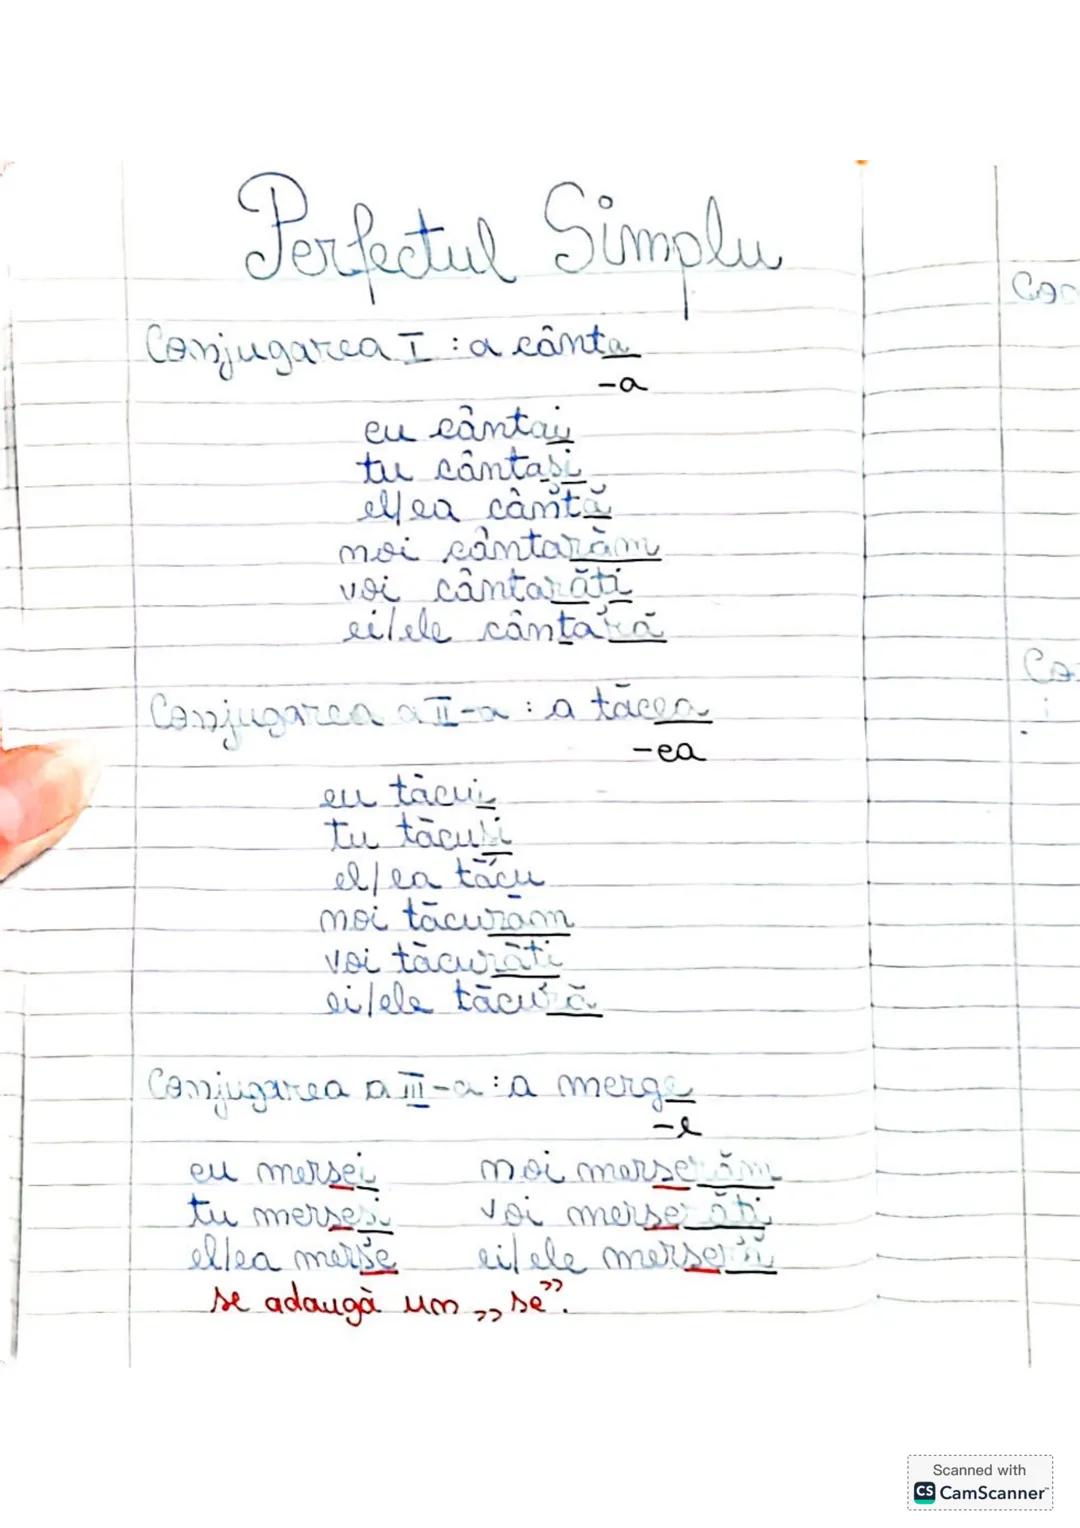 Perfectul Simplu
Conjugarea I : a cânta
-a
eu cântai
tu cântași
el/ea cântă
noi cântarăm
voi cântarăți
ei/ele cântară
Conjugarea a II-a : a tăcea
-ea
eu tăcui
tu tăcuși
el/ea tăcu
noi tăcurăm
voi tăcurăți
ei/ele tăcură
Conjugarea a III-a : a merge
-e
eu mersei noi merserăm
tu merseși voi merserăți
el/ea merse ei/ele merseră
se adaugă un „se”.
Scanned with
CS CamScanner